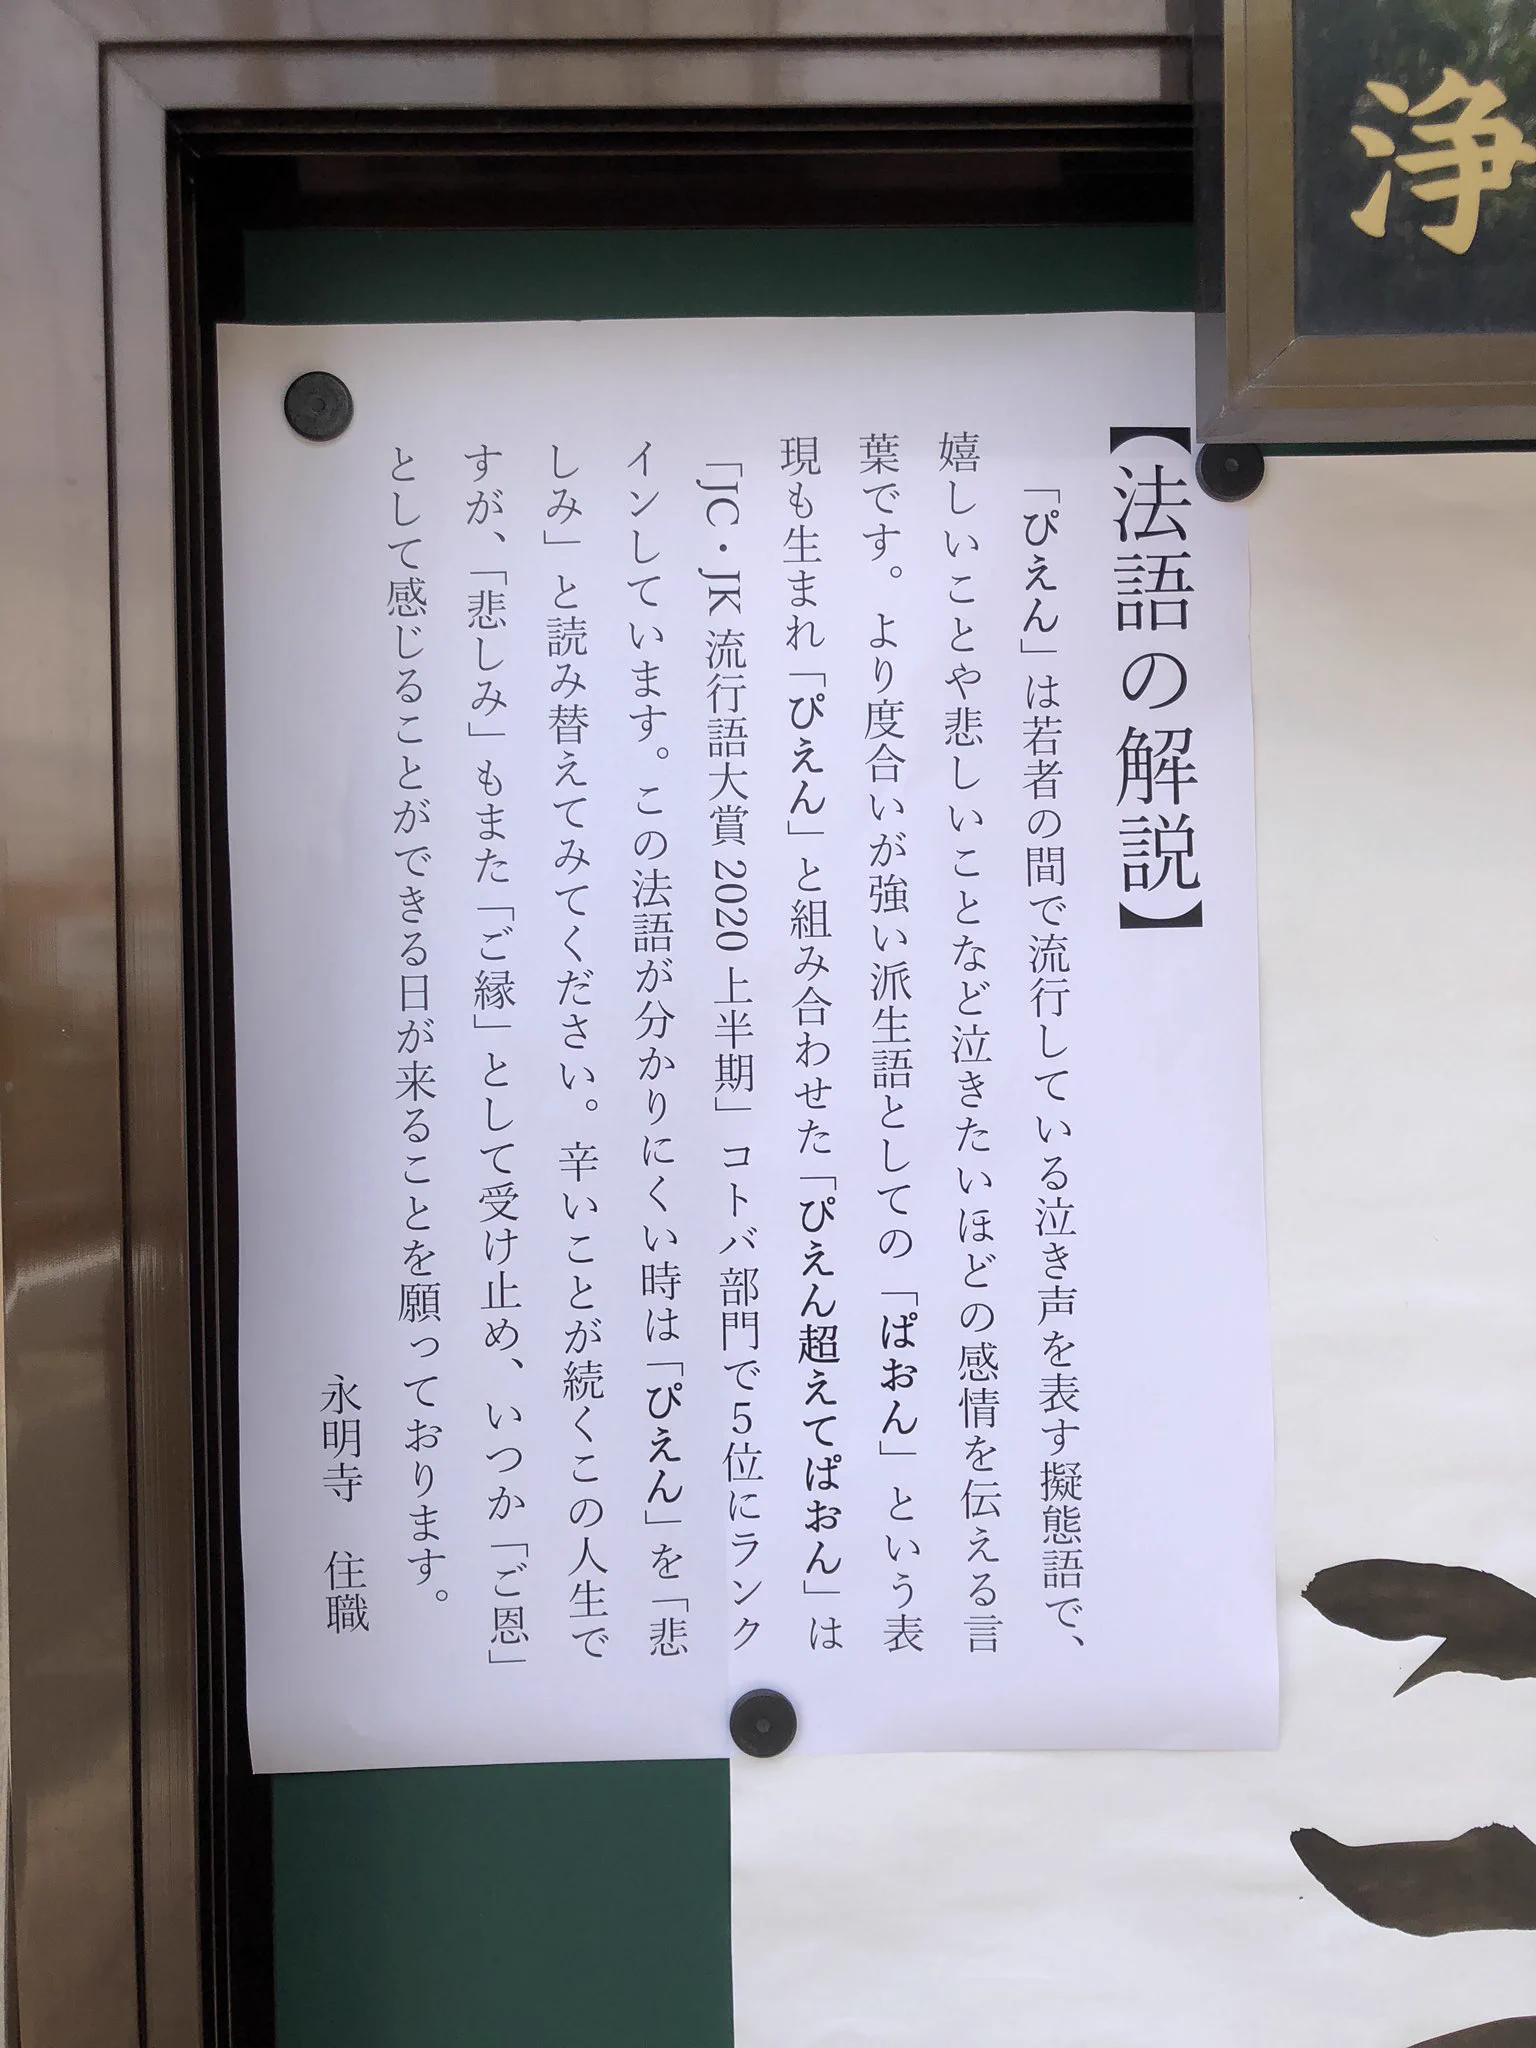 浄
【法語の解説】
「ぴえん」は若者の間で流行している泣き声を表す擬態語で、
嬉しいことや悲しいことなど泣きたいほどの感情を伝える言
葉です。より度合いが強い派生語としての「ぱおん」という表
現も生まれ「ぴえん」と組み合わせた「ぴえん超えてぱおん」は
「JC・JK 流行語大賞 2020 上半期」コトバ部門で5位にランク
インしています。この法語が分かりにくい時は「ぴえん」を「悲
しみ」と読み替えてみてください。辛いことが続くこの人生で
すが、「悲しみ」もまた「ご縁」として受け止め、いつか「ご恩」
として感じることができる日が来ることを願っております。
永明寺　住職